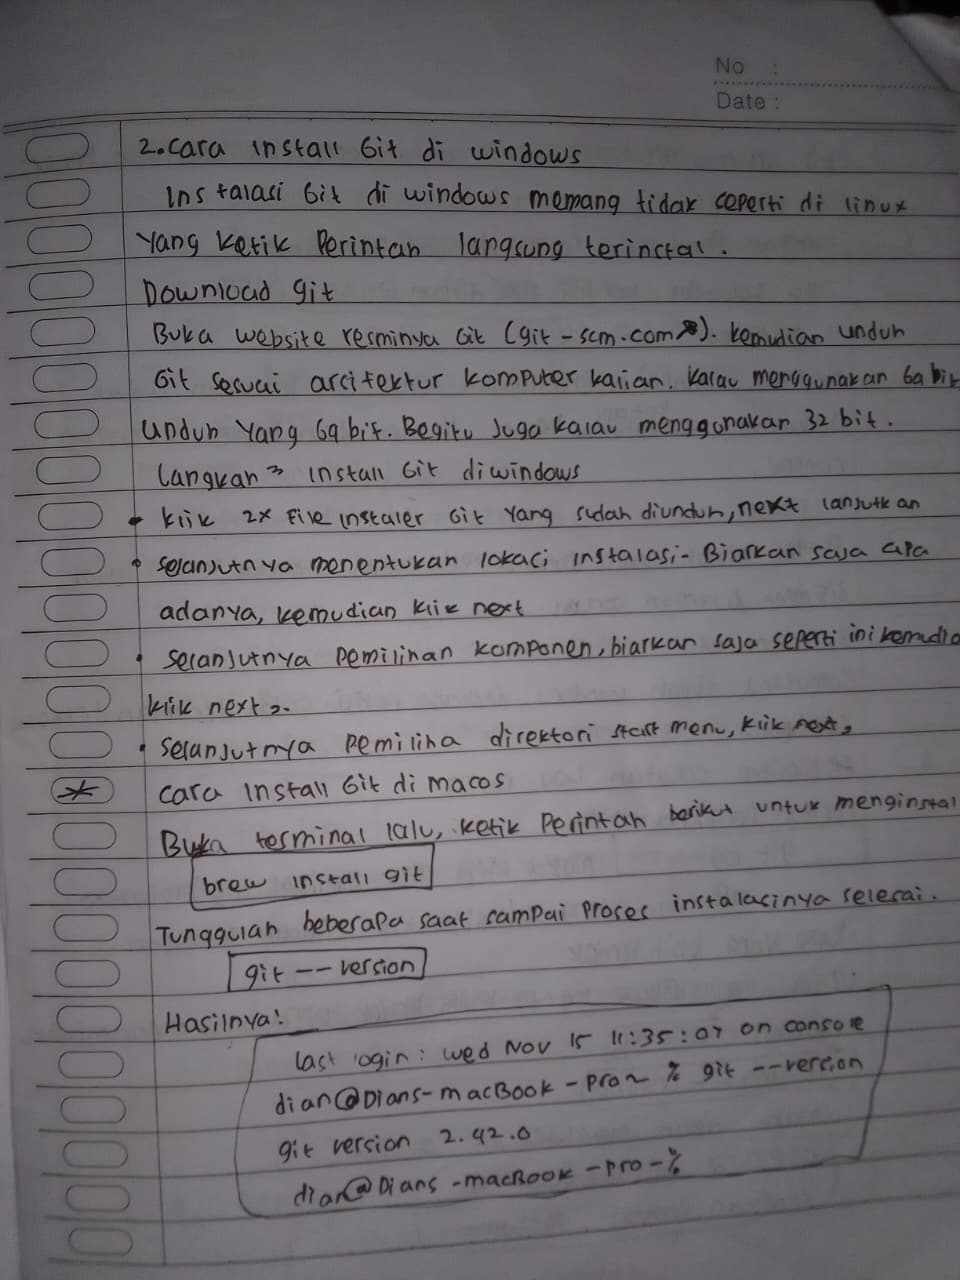 No :
Date :
2. Cara install Git di windows
Instalasi Git di windows memang tidak seperti di linux
yang ketik perintah langsung terinstal.
Download git
Buka website resminya Git (git-scm.com). kemudian unduh
Git sesuai arsitektur komputer kalian. Kalau menggunakan 64 bit
unduh yang 64 bit. Begitu juga kalau menggunakan 32 bit.
Langkah² install Git di windows
• klik 2x File instaler Git yang sudah diunduh, next lanjutkan
• selanjutnya menentukan lokasi instalasi. Biarkan saja apa
adanya, kemudian klik next
• selanjutnya pemilihan komponen, biarkan saja seperti ini kemudia
klik next.
• selanjutmya pemiliha direktori start menu, klik next,
* cara install Git di macos
Buka terminal lalu, ketik perintah berikut untuk menginstal
brew install git
Tunggulah beberapa saat sampai proses instalasinya selesai.
git -- version
Hasilnya:
last login : wed Nov 15 11:35:07 on console
dian@Dians-macBook-pro~ % git --version
git version 2.42.0
dian@Dians-macBook-pro-%